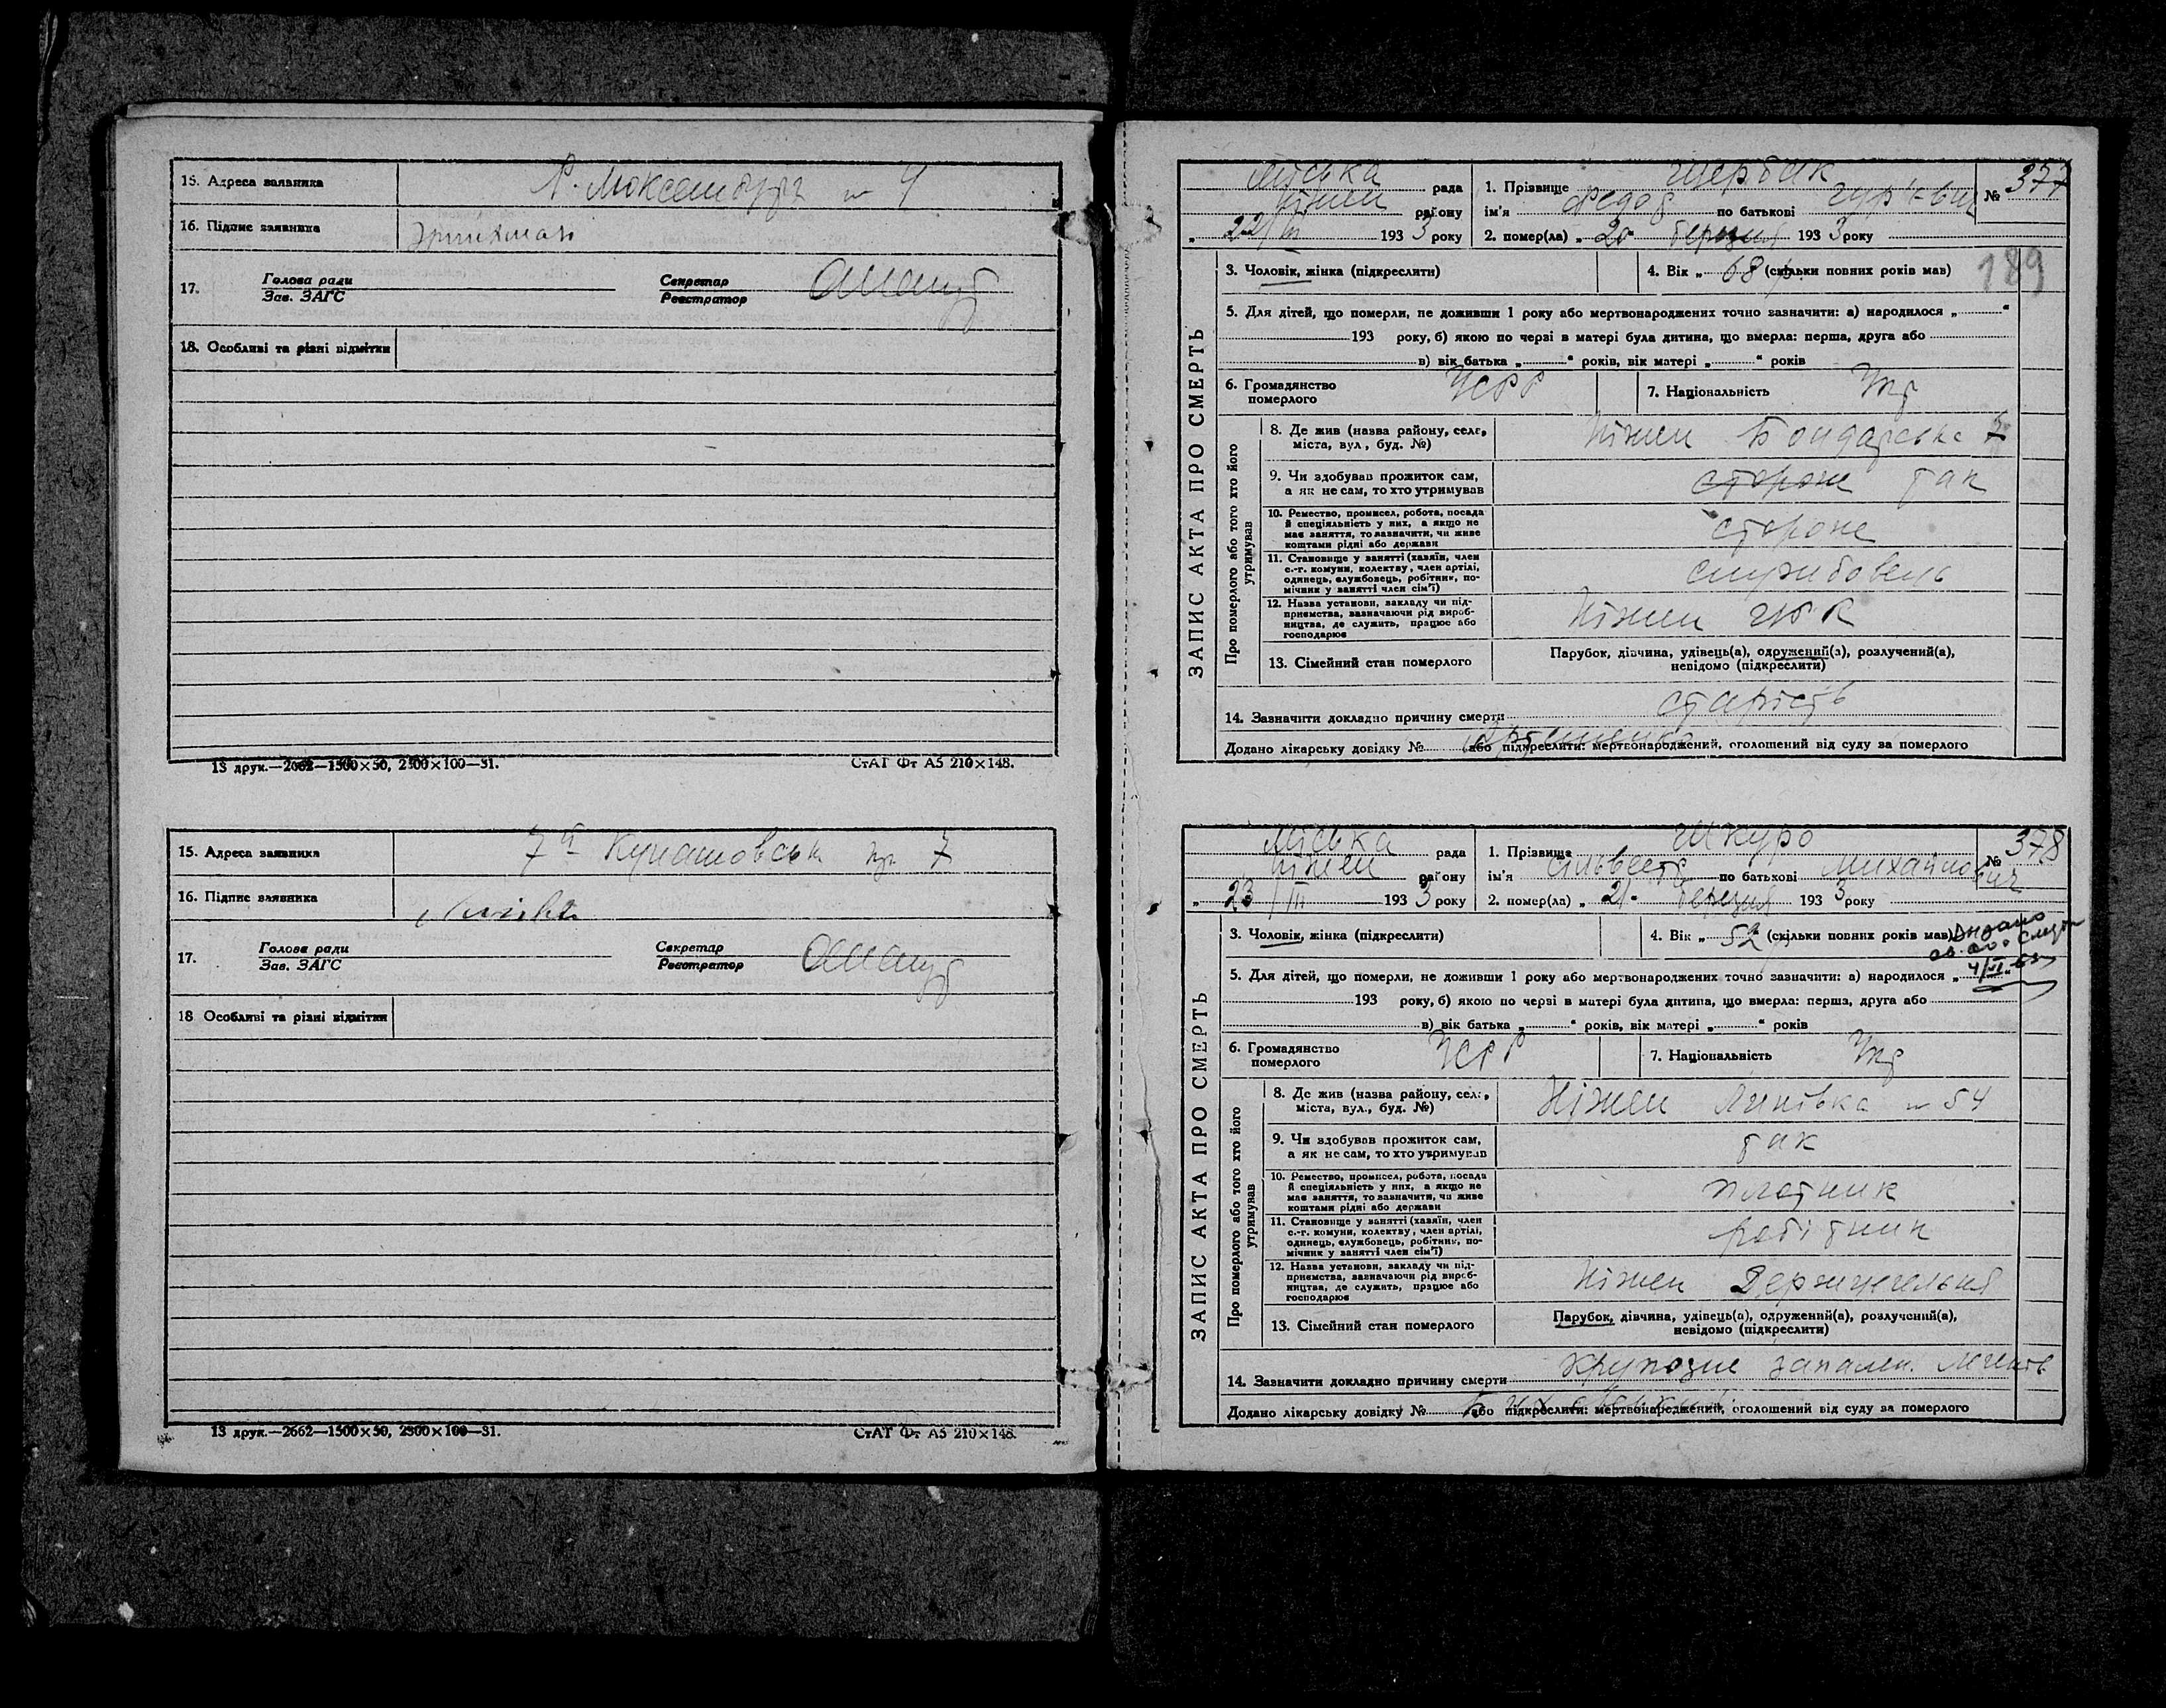 15. Адреса заявника Р. Люксембург № 4
16. Підпис заявника
17. Голова ради Секретар
Зав. ЗАГС Реєстратор
18. Особливі та різні відмітки
13 друк.—2662—1500×50, 2300×100—31. СтАТ Фт А5 210×148.
15. Адреса заявника 7й Кунашовськ пр 7
16. Підпис заявника
17. Голова ради Секретар
Зав. ЗАГС Реєстратор
18 Особливі та різні відмітки
13 друк.—2662—1500×50, 2300×100—31. СтАТ Фт А5 210×148.
ЗАПИС АКТА ПРО СМЕРТЬ
Міська рада
Ніжен району
„ 22/III 1933 року
1. Прізвище Щербак
ім'я Федор по батькові Гур'євич
№ 377
2. помер(ла) „ 20 березня 1933 року
3. Чоловік, жінка (підкреслити)
4. Вік „ 68 р. (скільки повних років мав)
189
5. Для дітей, що померли, не доживши 1 року або мертвонароджених точно зазначити: а) народилося „ “
193 року, б) якою по черзі в матері була дитина, що вмерла: перша, друга або
в) вік батька „ “ років, вік матері „ “ років
6. Громадянство УСРР
померлого
7. Національність Укр
Про померлого або того хто його утримував
8. Де жив (назва району, села, Ніжен Бондарська 7
міста, вул., буд. №)
9. Чи здобував прожиток сам, сторож так
а як не сам, то хто утримував
10. Ремество, промисел, робота, посада
й спеціяльність у них, а якщо не сторож
має заняття, то зазначити, чи живе
коштами рідні або держави
11. Становище у занятті (хазяїн, член
с.-г. комуни, колективу, член артілі, службовець
одинець, службовець, робітник, по-
мічник у занятті член сім'ї)
12. Назва установи, закладу чи під-
приємства, зазначаючи рід вироб- Ніжен
ництва, де служить, працює або
господарює
13. Сімейний стан померлого Парубок, дівчина, удівець(а), одружений(а), розлучений(а),
невідомо (підкреслити)
14. Зазначити докладно причину смерти старість
Додано лікарську довідку № (або підкреслити: мертвонароджений, оголошений від суду за померлого
ЗАПИС АКТА ПРО СМЕРТЬ
Міська рада
Ніжен району
„ 23/III 1933 року
1. Прізвище Шкуро
ім'я Сільвестр по батькові Михайлович
№ 378
2. помер(ла) „ 21 березня 1933 року
3. Чоловік, жінка (підкреслити)
4. Вік „ 52 (скільки повних років мав)
5. Для дітей, що померли, не доживши 1 року або мертвонароджених точно зазначити: а) народилося „
193 року, б) якою по черзі в матері була дитина, що вмерла: перша, друга або
в) вік батька „ “ років, вік матері „ “ років
6. Громадянство УСРР
померлого
7. Національність Укр
Про померлого або того хто його утримував
8. Де жив (назва району, села, Ніжен Липівка № 54
міста, вул., буд. №)
9. Чи здобував прожиток сам, так
а як не сам, то хто утримував
10. Ремество, промисел, робота, посада
й спеціяльність у них, а якщо не плотник
має заняття, то зазначити, чи живе
коштами рідні або держави
11. Становище у занятті (хазяїн, член
с.-г. комуни, колективу, член артілі, робітник
одинець, службовець, робітник, по-
мічник у занятті член сім'ї)
12. Назва установи, закладу чи під-
приємства, зазначаючи рід вироб- Ніжен Держцегельня
ництва, де служить, працює або
господарює
13. Сімейний стан померлого Парубок, дівчина, удівець(а), одружений(а), розлучений(а),
невідомо (підкреслити)
14. Зазначити докладно причину смерти крупозне запален. легенів
Додано лікарську довідку № або підкреслити: мертвонароджений, оголошений від суду за померлого